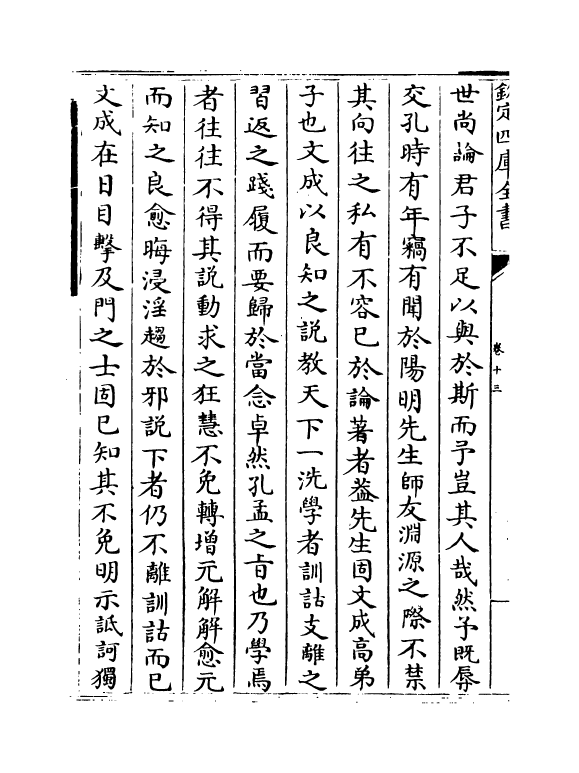 欽定四庫全書
卷十三
世尚論君子不足以與於斯而予豈其人哉然予既辱
交孔時有年竊有聞於陽明先生師友淵源之際不禁
其向往之私有不容已於論著者葢先生固文成高弟
子也文成以良知之說教天下一洗學者訓詁支離之
習返之踐履而要歸於當念卓然孔孟之㫖也乃學焉
者往往不得其說動求之狂慧不免轉增元解解愈元
而知之良愈晦浸淫趨於邪說下者仍不離訓詁而已
文成在日目擊及門之士固已知其不免明示詆訶獨